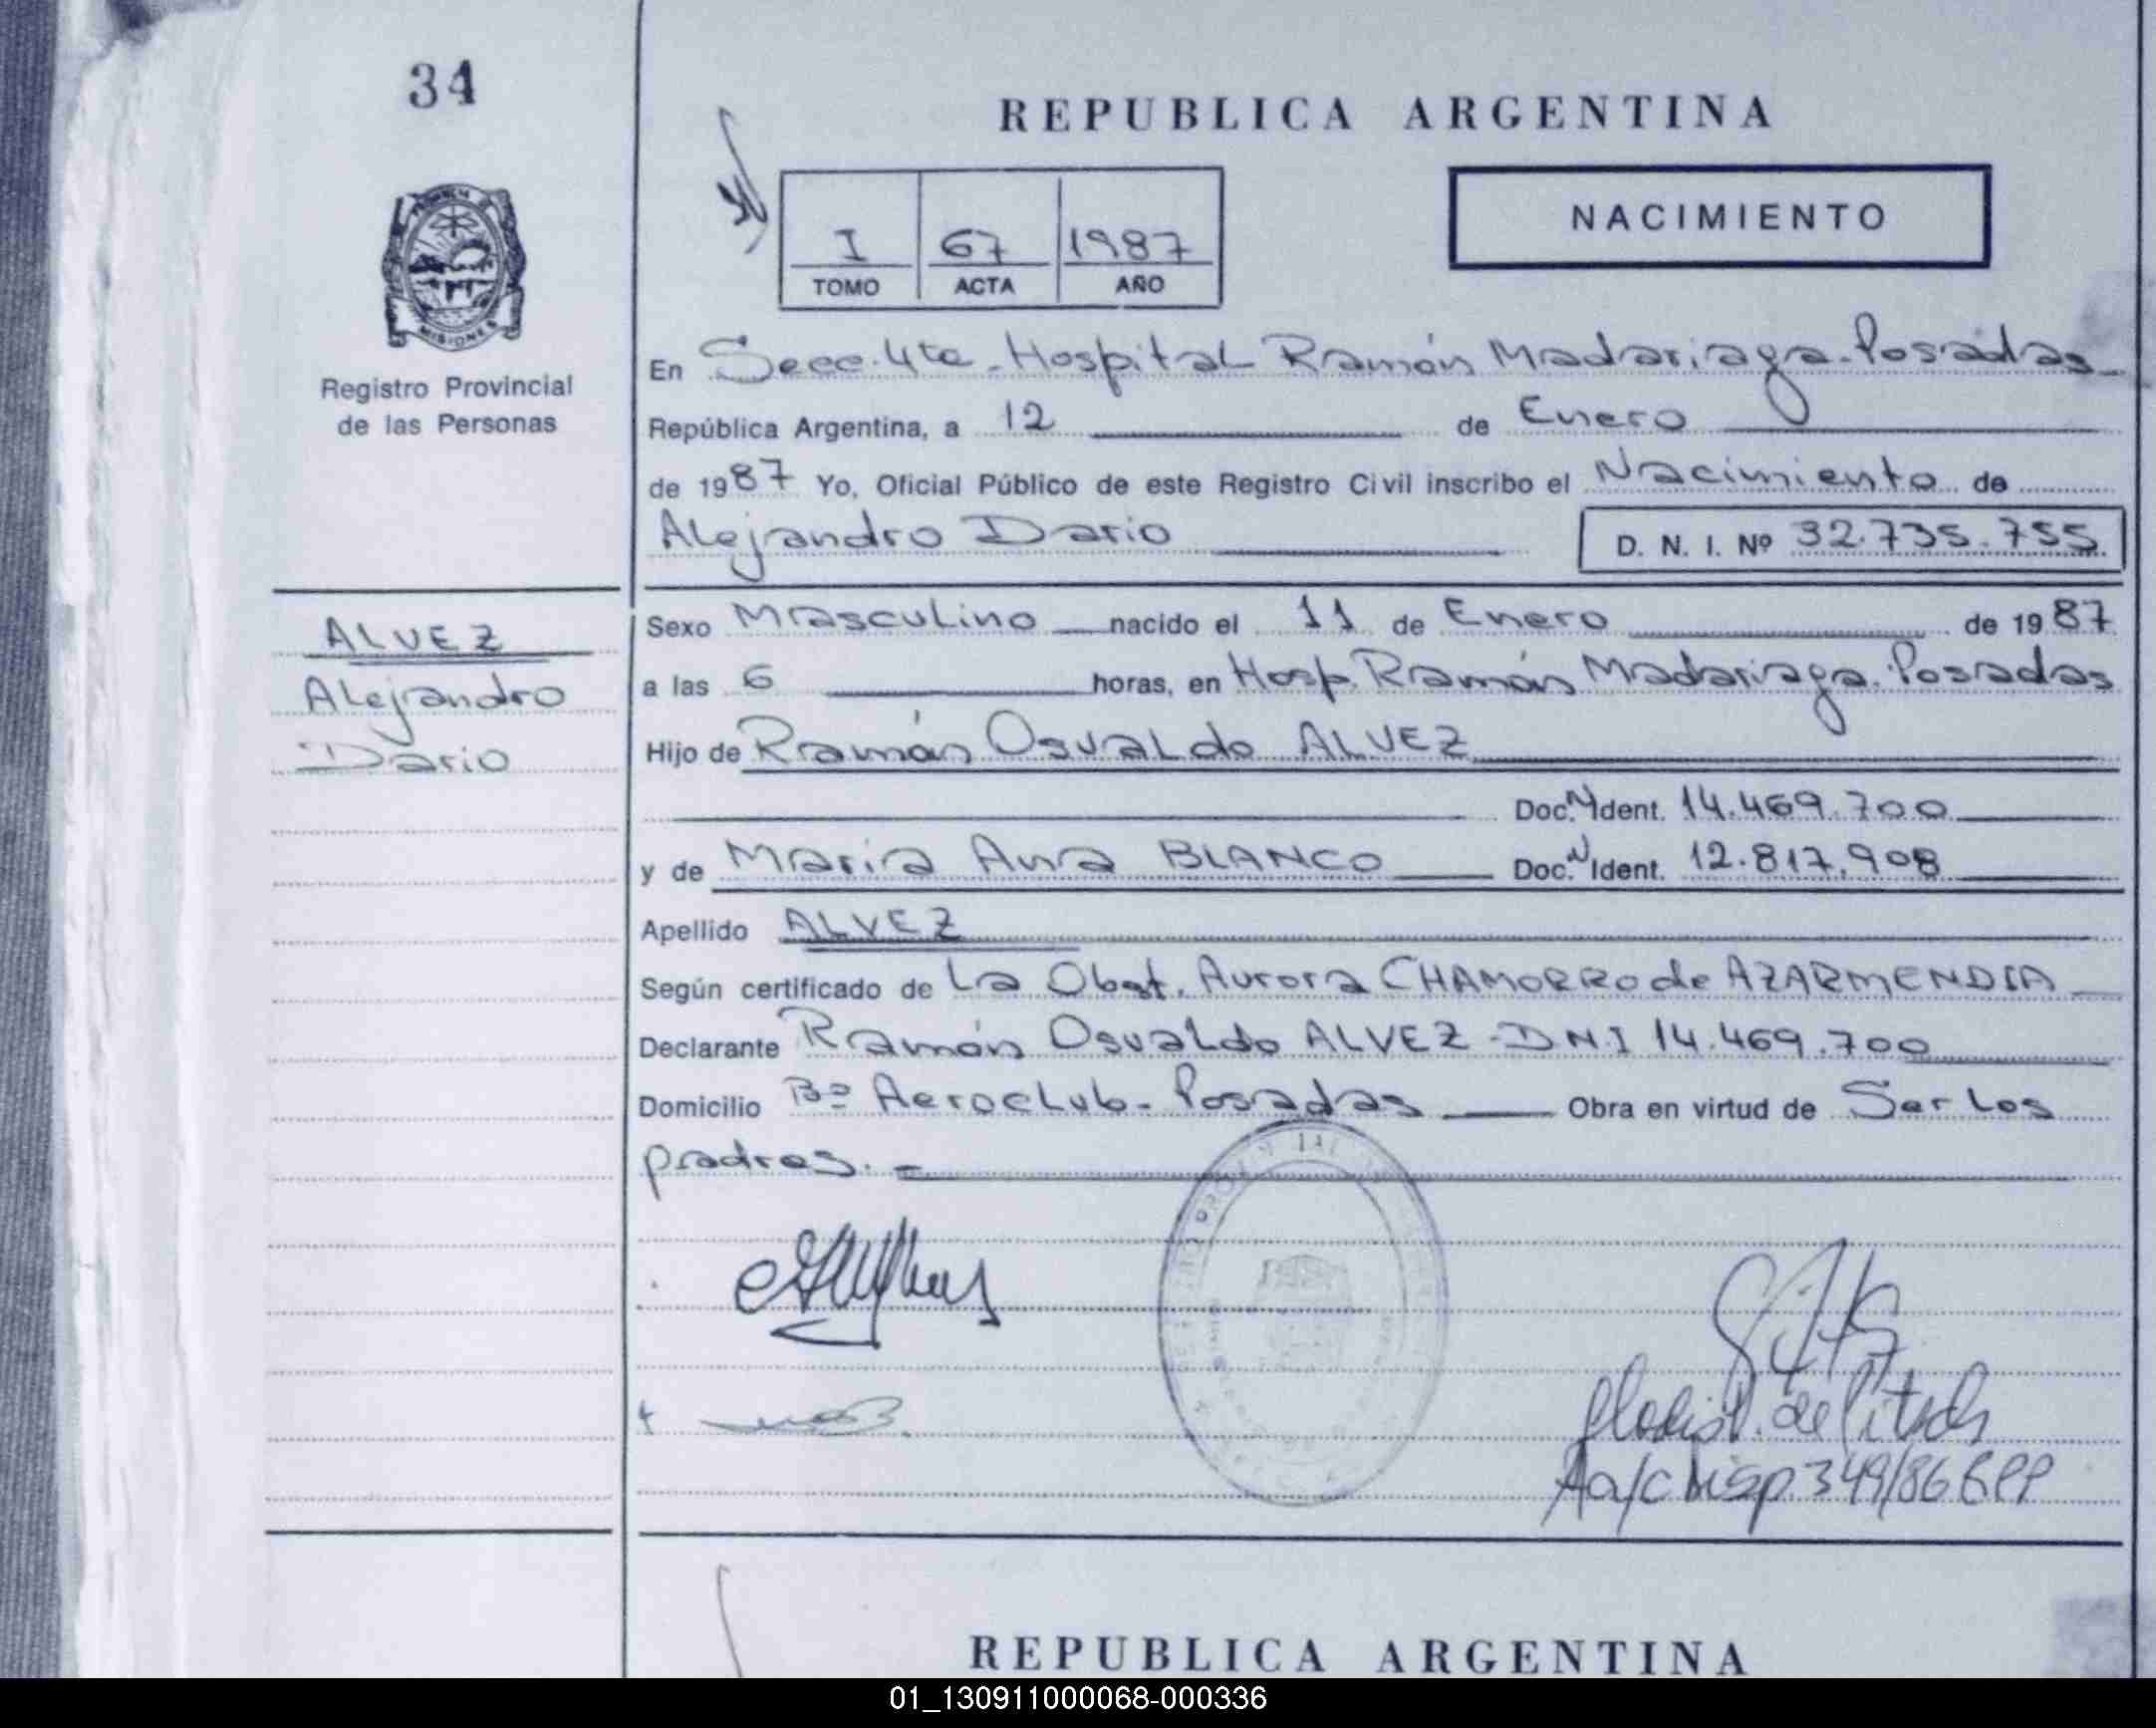 34
REPUBLICA ARGENTINA
I 67 1987
TOMO ACTA AÑO
NACIMIENTO
MISIONES
Registro Provincial
de las Personas
En Secc. 4ta - Hospital Ramón Madariaga - Posadas
República Argentina, a 12 de Enero
de 1987 Yo, Oficial Público de este Registro Civil inscribo el Nacimiento de
Alejandro Dario D. N. I. Nº 32.735.755
ALVEZ
Alejandro
Dario
Sexo Masculino nacido el 11 de Enero de 1987
a las 6 horas, en Hosp. Ramón Madariaga. Posadas
Hijo de Ramón Osvaldo ALVEZ
Doc. N Ident. 14.469.700
y de Maria Ana BLANCO Doc. N Ident. 12.817.908
Apellido ALVEZ
Según certificado de La Obst. Aurora CHAMORRO de AZARMENDIA
Declarante Ramón Osvaldo ALVEZ - DNI 14.469.700
Domicilio Bº Aeroclub - Posadas Obra en virtud de Ser los
padres. -
A a/c Disp. 349/86
REPUBLICA ARGENTINA
01_130911000068-000336